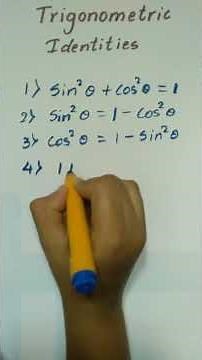 Trigonometric
Identities
1) Sin²θ + cos²θ = 1
2) Sin²θ = 1 - cos²θ
3) cos²θ = 1 - Sin²θ
4) 1